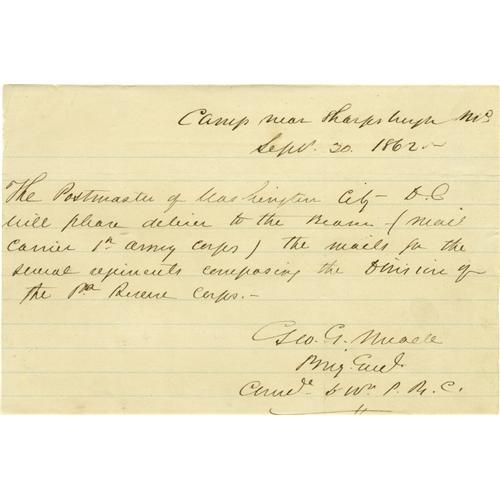 Camp near Sharpsburgh Md
Sept. 20. 1862
The Postmaster of Washington City D.C
will please deliver to the Bearer (Mail
Carrier 1st Army Corps) the mails for the
several regiments composing the Division of
the Pa Reserve Corps.
Geo. G. Meade
Brig. Genl.
Comdg Divn P. R. C.